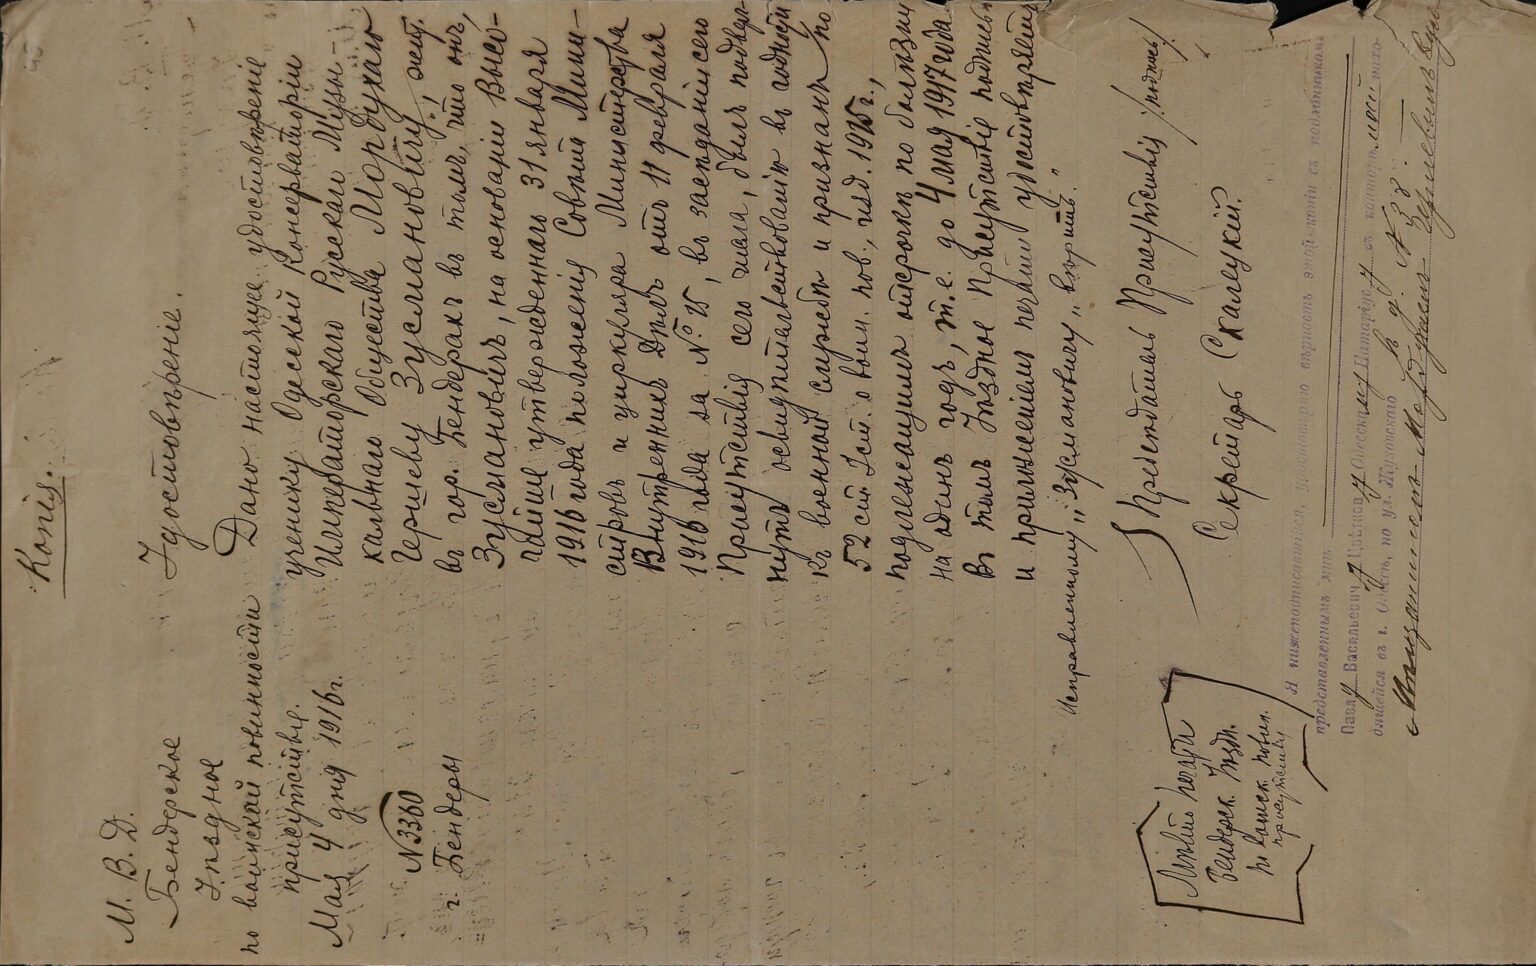 Копія.
М. В. Д.
Бендерское
Уѣздное
по воинской повинности
присутствіе.
Мая 4 дня 1916 г.
№ 3360
г. Бендеры
Удостовѣреніе.
Дано настоящее удостовѣреніе
ученику Одесской Консерваторіи
Императорскаго Русскаго Музы-
кальнаго Общества Мордухаю
Гершеву Зуслановичу, жит.
въ гор. Бендерахъ въ томъ, что онъ,
Зуслановичъ, на основаніи Высо-
чайше утвержденнаго 31 января
1916 года положенія Совѣта Мини-
стровъ и циркуляра Министерства
Внутреннихъ Дѣлъ отъ 11 февраля
1916 года за № 15, въ засѣданіи сего
Присутствія сего числа, былъ подверг-
нутъ освидѣтельствованію въ годности
къ военной службѣ и признанъ по
52 ст. Уст. о воин. пов., изд. 1915 г.,
подлежащимъ отсрочкѣ по болѣзни
на одинъ годъ, т. е. до 4 мая 1917 года.
Въ томъ Уѣздное Присутствіе подписью
и приложеніемъ печати удостовѣряетъ
Исправленному „Зуслановичу" вѣрить."
Предсѣдатель Присутствія /подпись/.
Секретарь Скалецкій.
Мѣсто печати
Бендерск. Уѣздн.
по воинск. повин.
присутствія
Я нижеподписавшійся, удостовѣряю вѣрность этой копіи съ подлинникомъ
представленнымъ мнѣ
Павлу Васильевичу Цвѣткову Одесскому Нотаріусу въ конторѣ моей нахо-
дящейся въ г. Одессѣ, по ул. Жуковского въ д. № 38 —